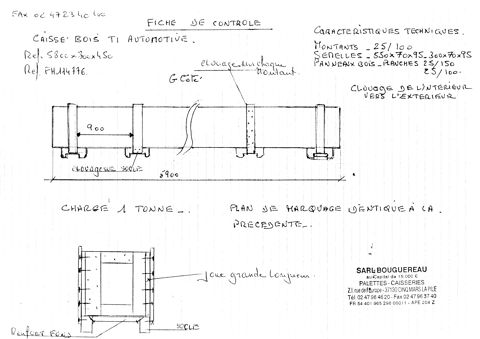 FAX 02 47 23 40
FICHE DE CONTROLE
CAISSE BOIS TI AUTOMOTIVE.
Ref. 5800x300x450
Ref. PH114776
CARACTERISTIQUES TECHNIQUES.
MONTANTS - 25/100
SEMELLES - 550x70x95 - 300x70x95
PANNEAUX BOIS - PLANCHES 25/150
25/100
CLOUAGE DE L'INTERIEUR
VERS L'EXTERIEUR
clouage sur chaque
montant
900
CLOUAGE SUR SEMELLE
5900
CHARGE 1 TONNE -.
PLAN DE MARQUAGE IDENTIQUE A LA
PRECEDENTE -.
Joue grande longueur
Renfort FOND
SEMELLE
SARL BOUGUEREAU
au Capital de 15 000 €
PALETTES - CAISSERIES
Z.I. rue de l'Europe - 37130 CINQ MARS LA PILE
Tél 02 47 96 46 20 - Fax 02 47 96 37 40